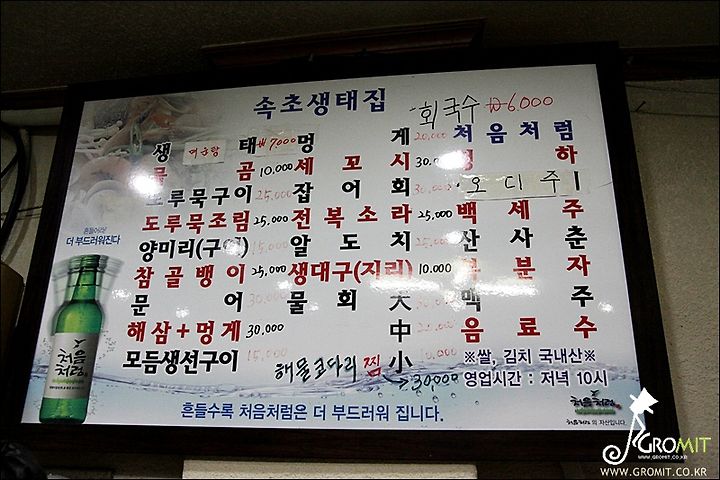 속초생태집 회국수 ₩6000
생 태 ₩7,000 멍 게 20,000 처음처럼
곰 10,000 세 꼬 시 30, 하
도루묵구이 25,000 잡 어 회 30,000 오디주
도루묵조림 25,000 전복소라 25,000 백 세 주
양미리(구이) 15,000 알 도 치 25,000 산 사 춘
참골뱅이 25,000 생대구(지리) 10,000 분 자
문 어 30,000 물 회 大 맥 주
해삼+멍게 30,000 中 음 료 수
모듬생선구이 15,000 해물코다리찜 小 10,000 ※쌀, 김치 국내산※
30,000 영업시간 : 저녁 10시
흔들어라!
더 부드러워진다
처음처럼
흔들수록 처음처럼은 더 부드러워 집니다.
처음처럼
처음처럼의 자산입니다.
GROMIT
WWW.GROMIT.CO.KR
WWW.GROMIT.CO.KR